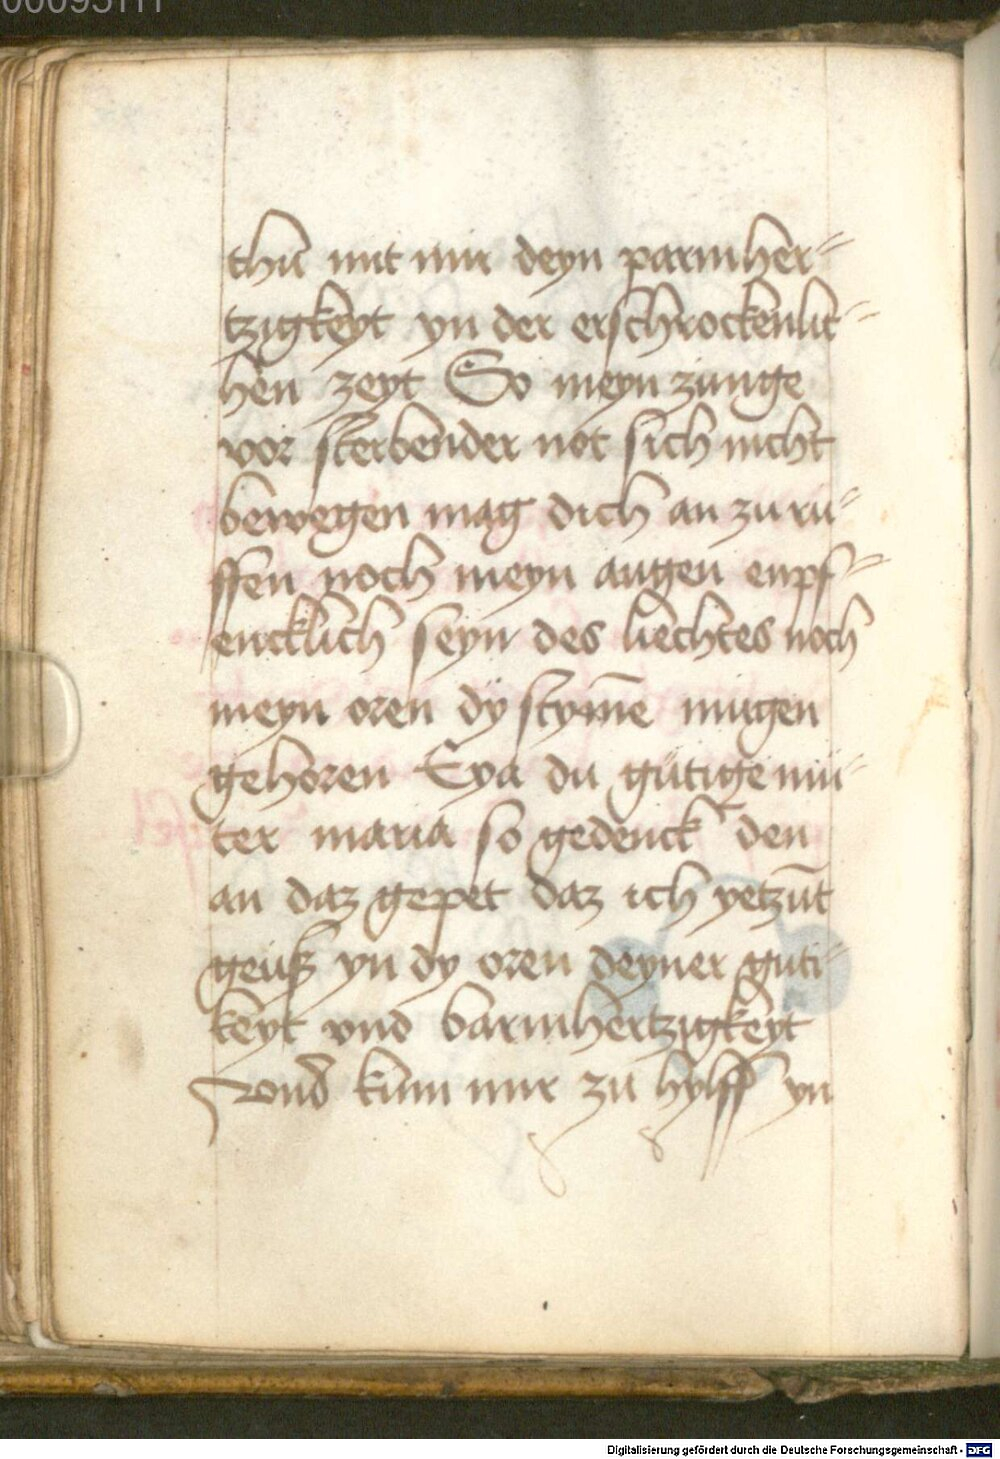 thu mit mir deyn parmher-
tzigkeyt yn der erschrockenlic-
hen zeyt So meyn zunge
vor sterbender not sich nicht
bewegen mag dich an zu ru-
ffen noch meyn augen enpf-
encklich seyn des liechtes noch
meyn oren dÿ stym̄e mugen
gehoren Eya du gütige mu-
ter maria so gedenck den
an daz gepet daz ich yetzūt
geuß yn dy oren deyner guti-
keyt vnd barmhertzigkeyt
vnd kum mir zu hylff yn
Digitalisierung gefördert durch die Deutsche Forschungsgemeinschaft - DFG